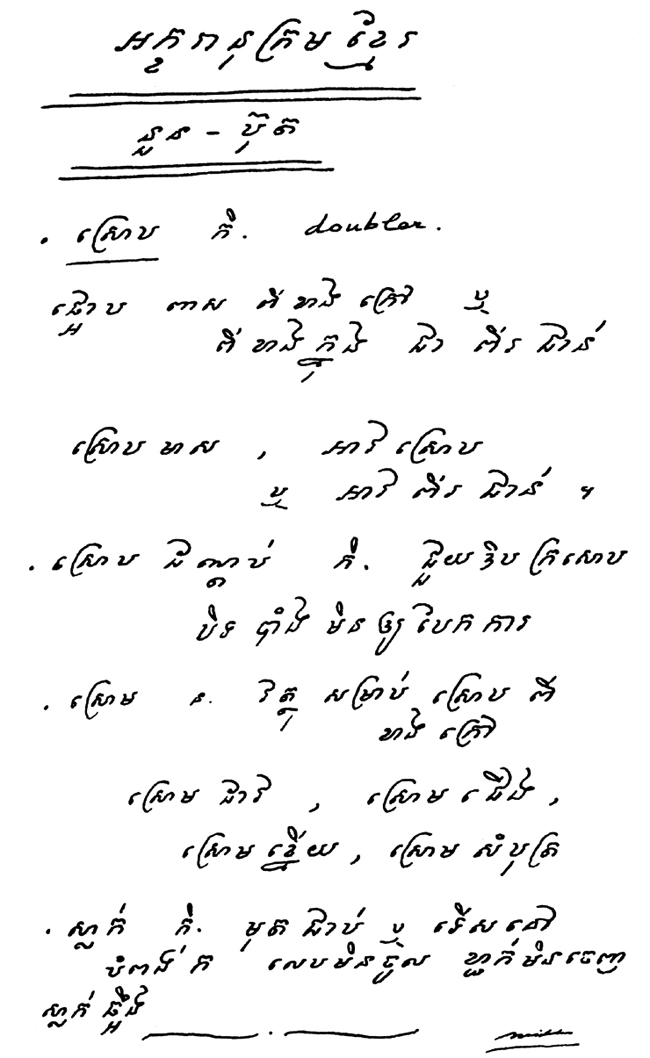 អក្ខរានុក្រមខ្មែរ
នួន - ប៊ុត
. ស្រោប កិ. doubler.
ផ្អោប ពាស ពីខាងក្រៅ ឬ
ពីខាងក្នុង ជា ពីរ ជាន់
ស្រោបមាស , អាវស្រោប
ឬ អាវ ពីរ ជាន់ ។
. ស្រោប ដណ្ដប់ កិ. ជួយឱបក្រសោប
បិទ បាំង មិនឲ្យបែកការ
. ស្រោម ន. វត្ថុ សម្រាប់ ស្រោប ពី
ខាងក្រៅ
ស្រោមដាវ , ស្រោមជើង ,
ស្រោមខ្នើយ , ស្រោមសំបុត្រ
. ស្លាក់ កិ. មុតជាប់ ឬ ទើសនៅ
បំពង់ក លេបមិនចូល ខ្ជាក់មិនចេញ
ស្លាក់ឆ្អឹង